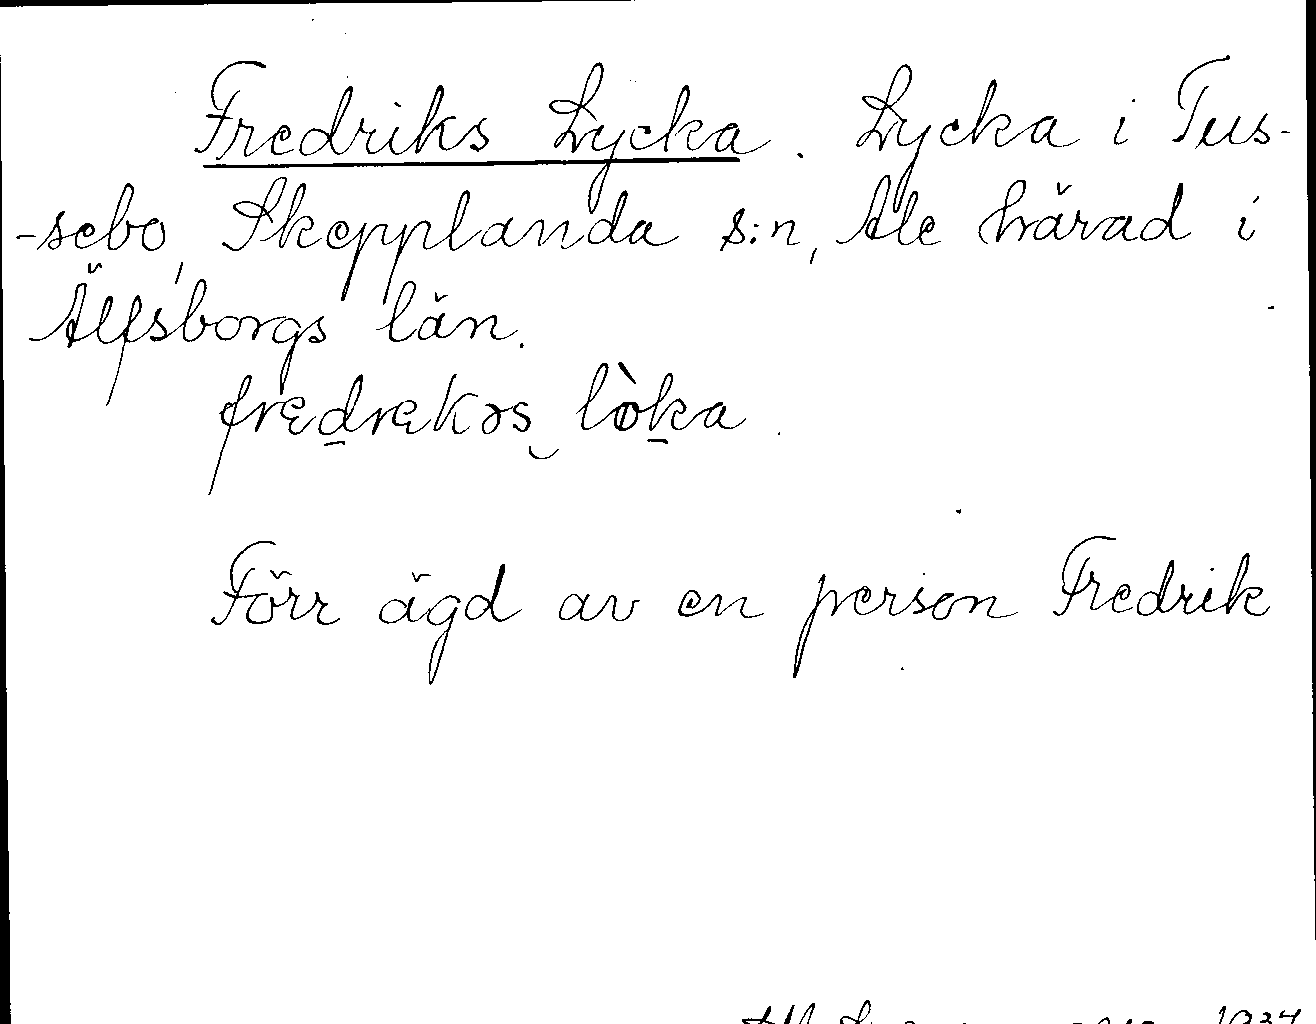 Fredriks Lycka. Lycka i Tus-
-sebo, Skepplanda s:n, Ale härad i
Älfsborgs län.
fredrekəs lòka.
Förr ägd av en person Fredrik
1934